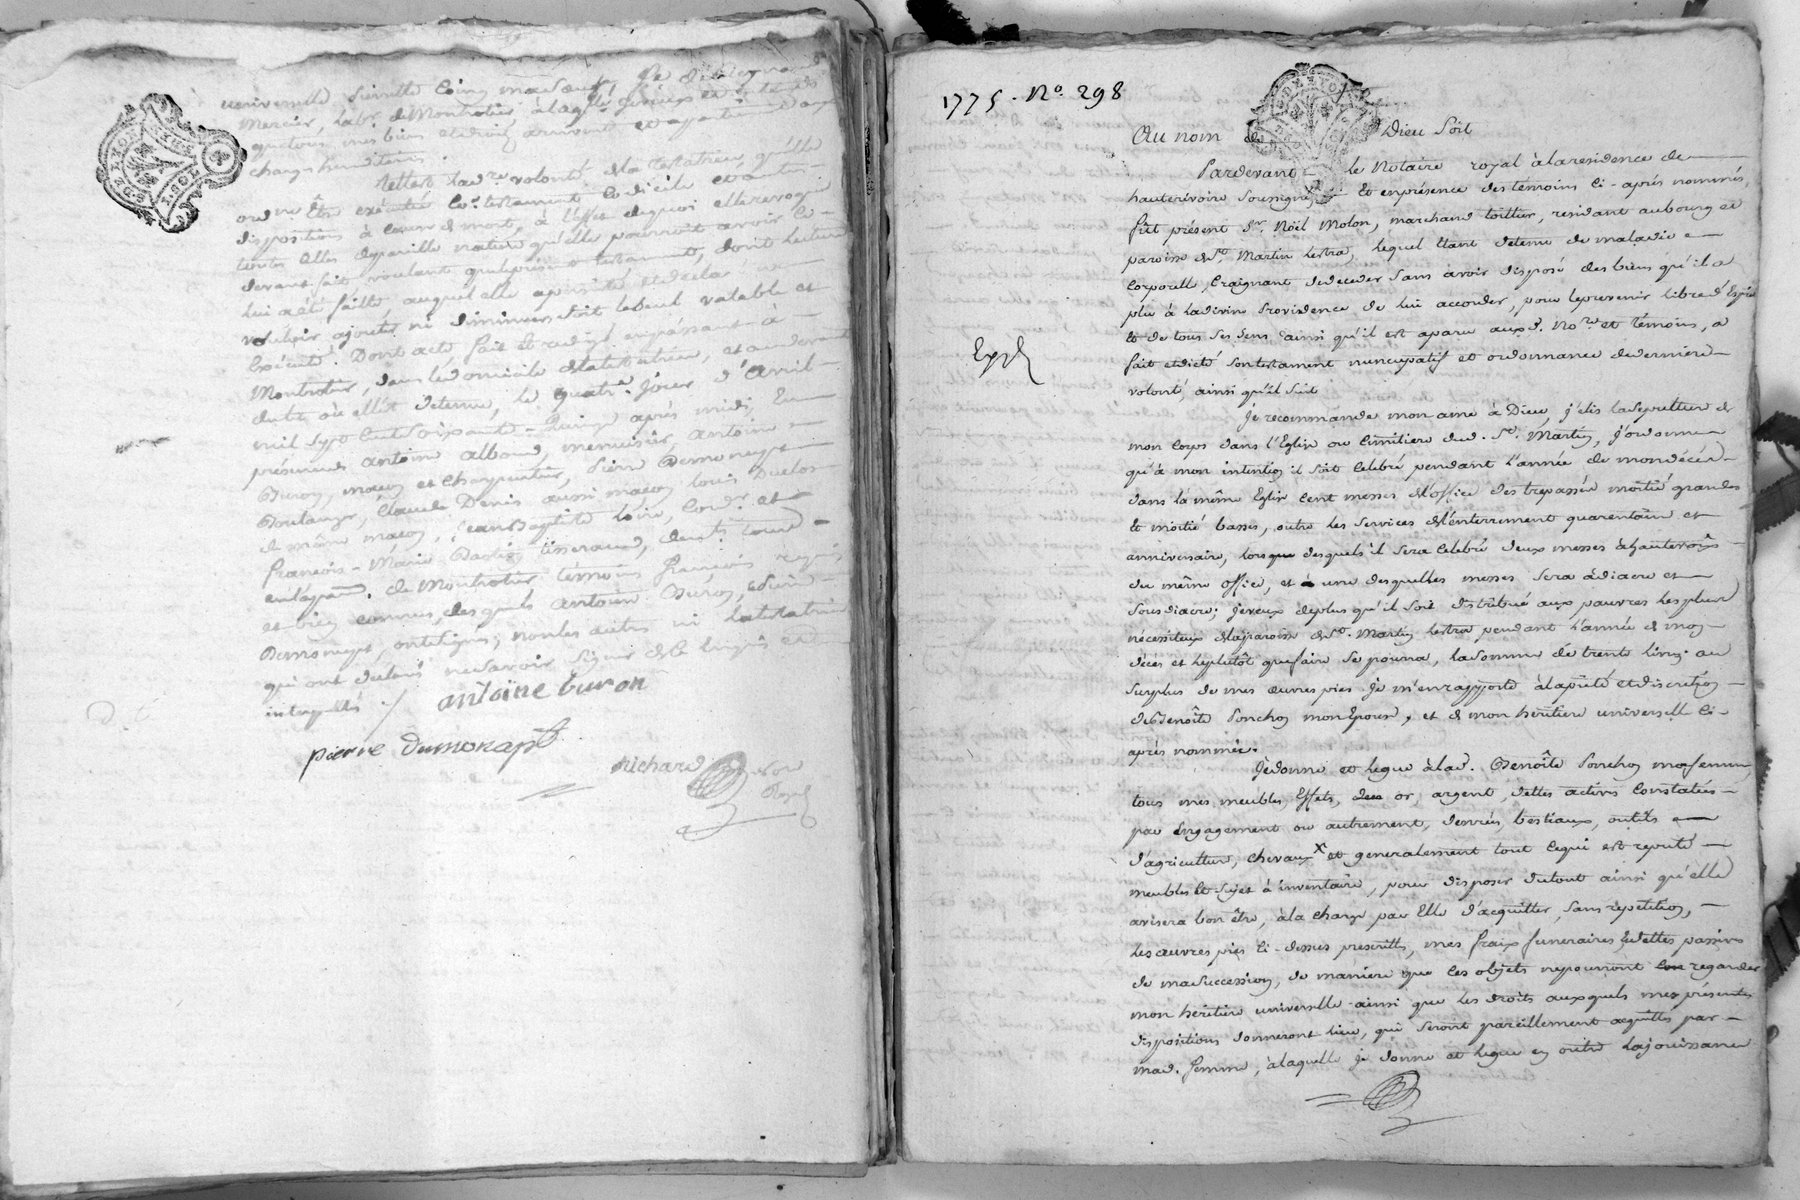 universelle
Mercier, labr. de Montrotier
que tous mes biens et droits arrivent et apartiennent aux
charges hereditaires.
telle est la d.re volonté de la testatrice, qu'elle
ord.ne être executée co.e testament codicile et autre
dispositions à cause de mort, à l'effet de quoi elle revoque
toutes celles de pareille nature qu'elle pourroit avoir ci-
devant fait, voulant que le présent testament, dont lecture
lui a été faitte, auquel elle a persisté et declaré ne
vouloir ajouter ni diminuer, soit le seul valable et
exécuté. Dont acte fait et redigé en passant à
Montrotier, dans le domicile de la testatrice, et au devant
du lit où elle est detenue, le quatr.e jour d'avril
mil sept cent soixante-quinze après midi, en
présence d'antoine alboud, menuisier, antoine
Buron, maçon et charpentier, Pierre Demoneys
Boulanger, Claude Denis aussi maçon, louis Duclos
de même maçon, jean Baptiste loire, Cord.r et
françois-Marie Bastion tisserand, dem.ts tous
en la par.sse de Montrotier témoins
et bien connus, desquels antoine Buron, et Pierre
Demoneys, ont signé, non les autres ni la testatrice
qui ont declaré ne savoir signer de ce enquis et
interpellés ./.
antoine buron
pierre dumonaps
richard
not.
Royal
1775. No. 298
Au nom de Dieu soit
Pardevant le Notaire royal à la residence de
hauterivoire soussigné, et en présence des témoins ci-aprés nommés,
fut présent Sr. Noël Molon, marchand toillier, residant au bourg et
paroisse de St. Martin lestra, lequel étant detenu de maladie
corporelle, craignant de deceder sans avoir disposé des biens qu'il a
plu à la divine Providence de lui accorder, pour le prevenir libre d'Esprit
et de tous ses sens ainsi qu'il est aparu aux d. No.re et témoins, a
fait et dicté son testament nuncupatif et ordonnance de derniere
volonté, ainsi qu'il suit
Expd
Je recommande mon ame à Dieu, j'elis la sepulture de
mon corps dans l'Eglise ou cimitiere dud. St. Martin, j'ordonne
qu'à mon intention il soit celebré pendant l'année de mon décès
dans la même Eglise cent messes de l'office des trepassés moitié grandes
et moitié basses, outre les services de l'enterrement quarentain et
anniversaire, lors desquels il sera celebré deux messes à haute voix
du même office, et à une desquelles messes sera à diacre et
sousdiacre; je veux de plus qu'il soit distribué aux pauvres les plus
nécessiteux de la paroisse de St. Martin lestra pendant l'année de mon
décès et le plutôt que faire se pourra, la somme de trente livres. au
surplus de mes œuvres pies je m'en rapporte à la piété et discretion
de Benoîte Ponchon mon Epouse, et de mon héritiere universelle ci-
aprés nommée.
Je donne et legue à lad. Benoîte Ponchon ma femme,
tous mes meubles, effets, or, argent, dettes actives constatées
par engagement ou autrement, denrées, bestiaux, outils
d'agriculture, chevaux x et generalement tout ce qui est reputé
meubles et sujet à inventaire, pour disposer du tout ainsi qu'elle
avisera bon être, à la charge par elle d'acquitter, sans répétition,
les œuvres pies ci-dessus prescrittes, mes fraix funeraires, et dettes passives
de ma succession, de maniere que ces objets ne pourront regarder
mon héritiere universelle ainsi que les droits auxquels mes présentes
dispositions donneront lieu, qui seront pareillement acquittés par
mad. femme, à laquelle je donne et legue en outre la jouissance